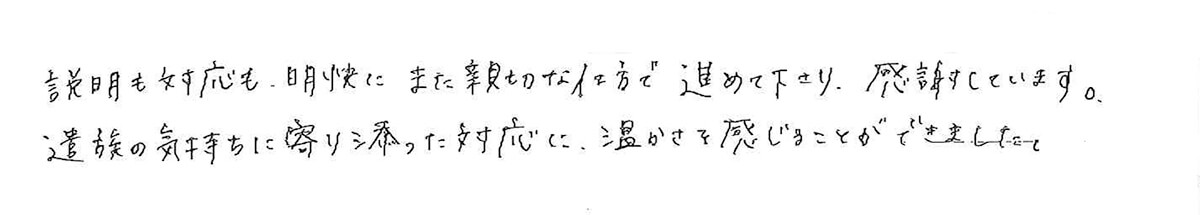 説明も対応も、明快に また親切な仕方で 進めて下さり、感謝しています。
遺族の気持ちに寄り添った対応に、温かさを感じることができました。